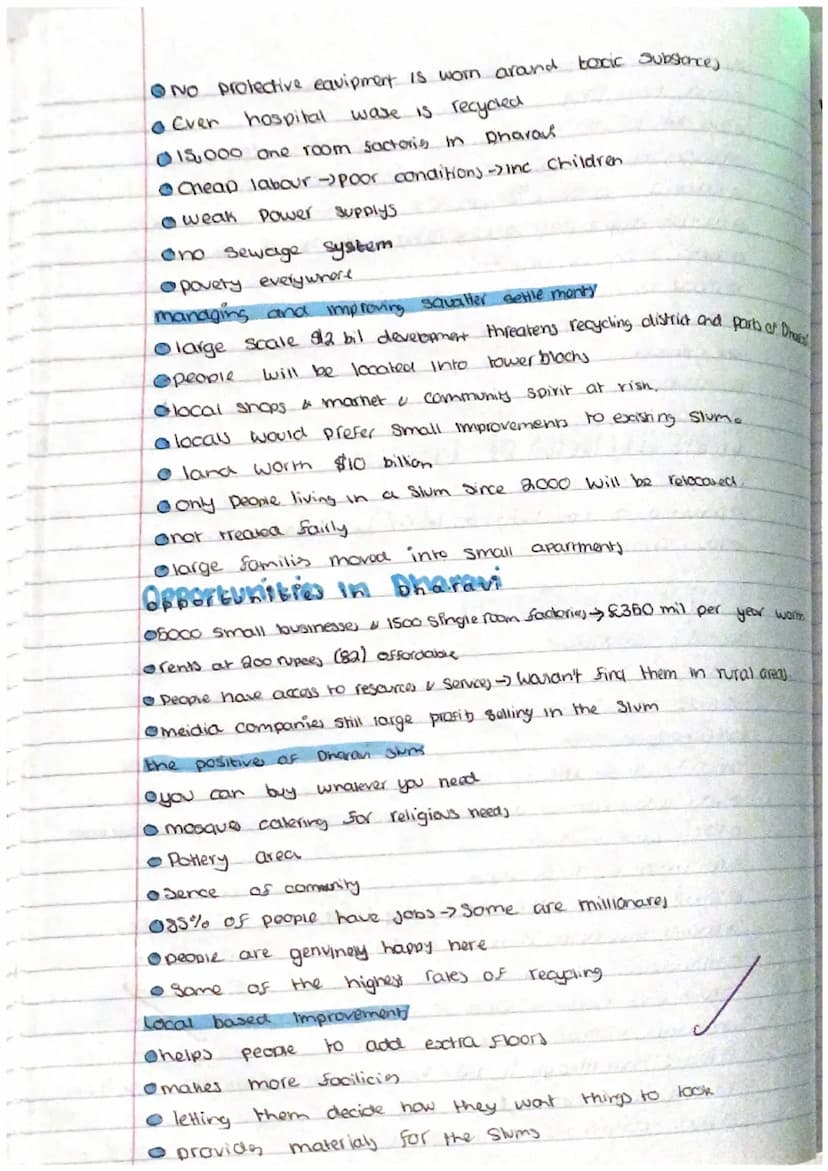 No protective equipment is worn around toxic substances
Even hospital wase is recycled
15,000 one room factoris in Dharavi
Cheap labour → poor conditions → inc children
weak power supplys
no sewage system
povety everywhere
managing and improving squatter settlements
large scale $2 bil development threatens recycling district and parts of Dharavi
people will be located into tower blocks
local shops & market & community spirit at risk.
locals would prefer small improvements to existing slums
land worth $10 billion
only people living in a slum since 2000 will be relocated.
not treated fairly
large familis moved into small apartments
Opportunities in Dharavi
5000 small businesses & 1500 single room factories → £350 mil per year worth
rents at 200 rupees (£2) affordable
People have access to resources & services → wouldn't find them in rural areas
meidia companies still large profits selling in the slum
the positives of Dharavi slums
you can buy whatever you need
mosques catering for religious needs
Pottery area
sence of comunity
85% of people have jobs → some are millionares
people are genuinely happy here
Some of the highest rates of recycling
Local based improvements
helps people to add extra floors
makes more facilicis
letting them decide how they want things to look
provides materials for the slums